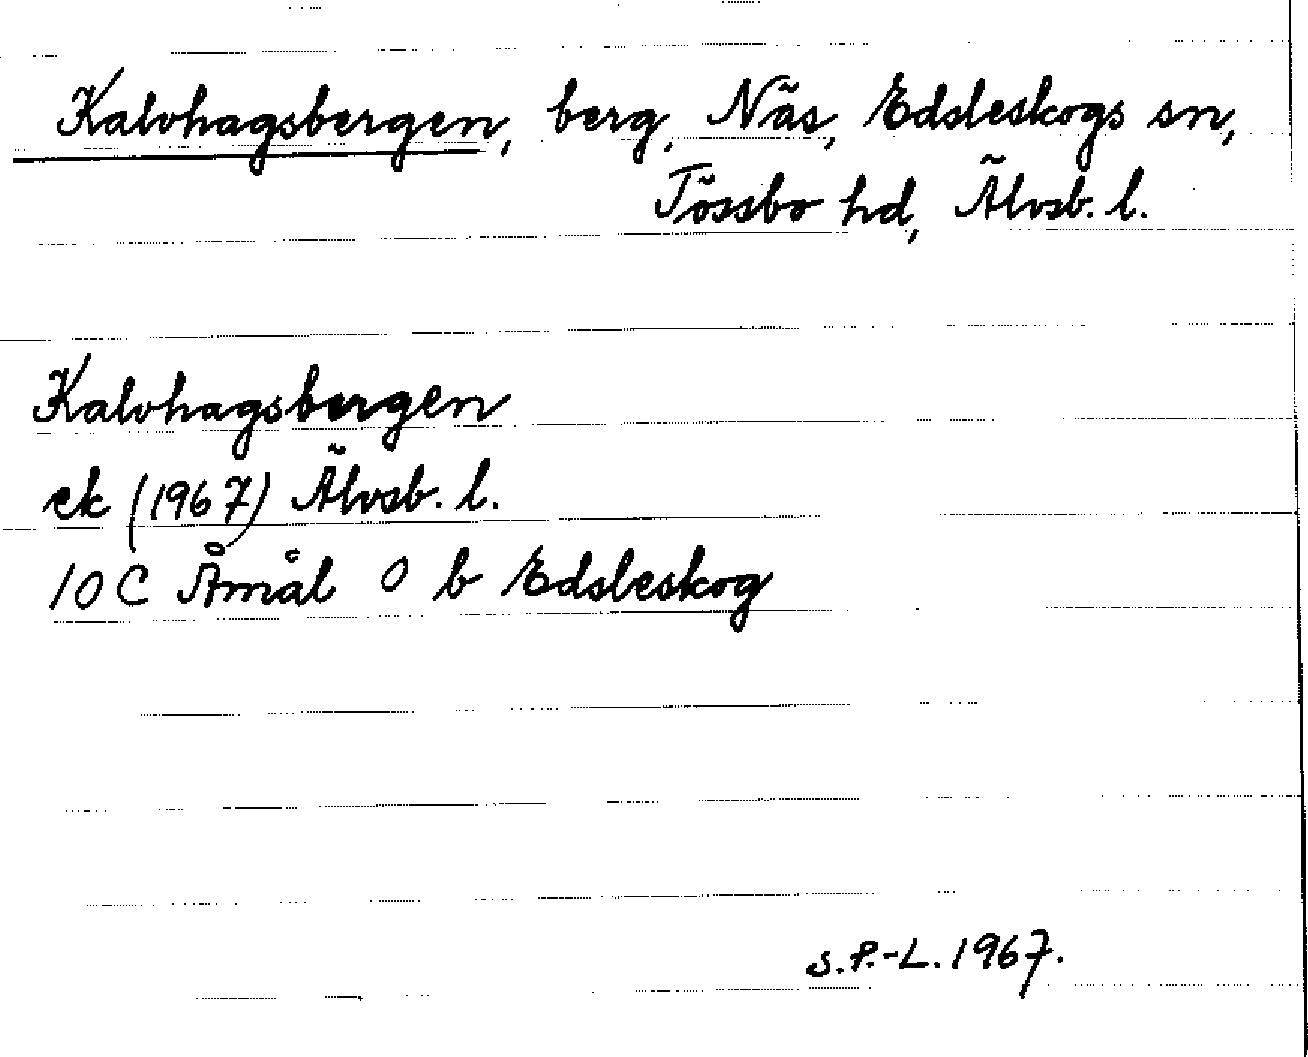 Kalvhagsbergen, berg, Näs, Edsleskogs sn,
Tössbo hd, Älvsb. l.
Kalvhagsbergen
ek (1967) Älvsb. l.
10 C Åmål 0 b Edsleskog
S.P.-L. 1967.